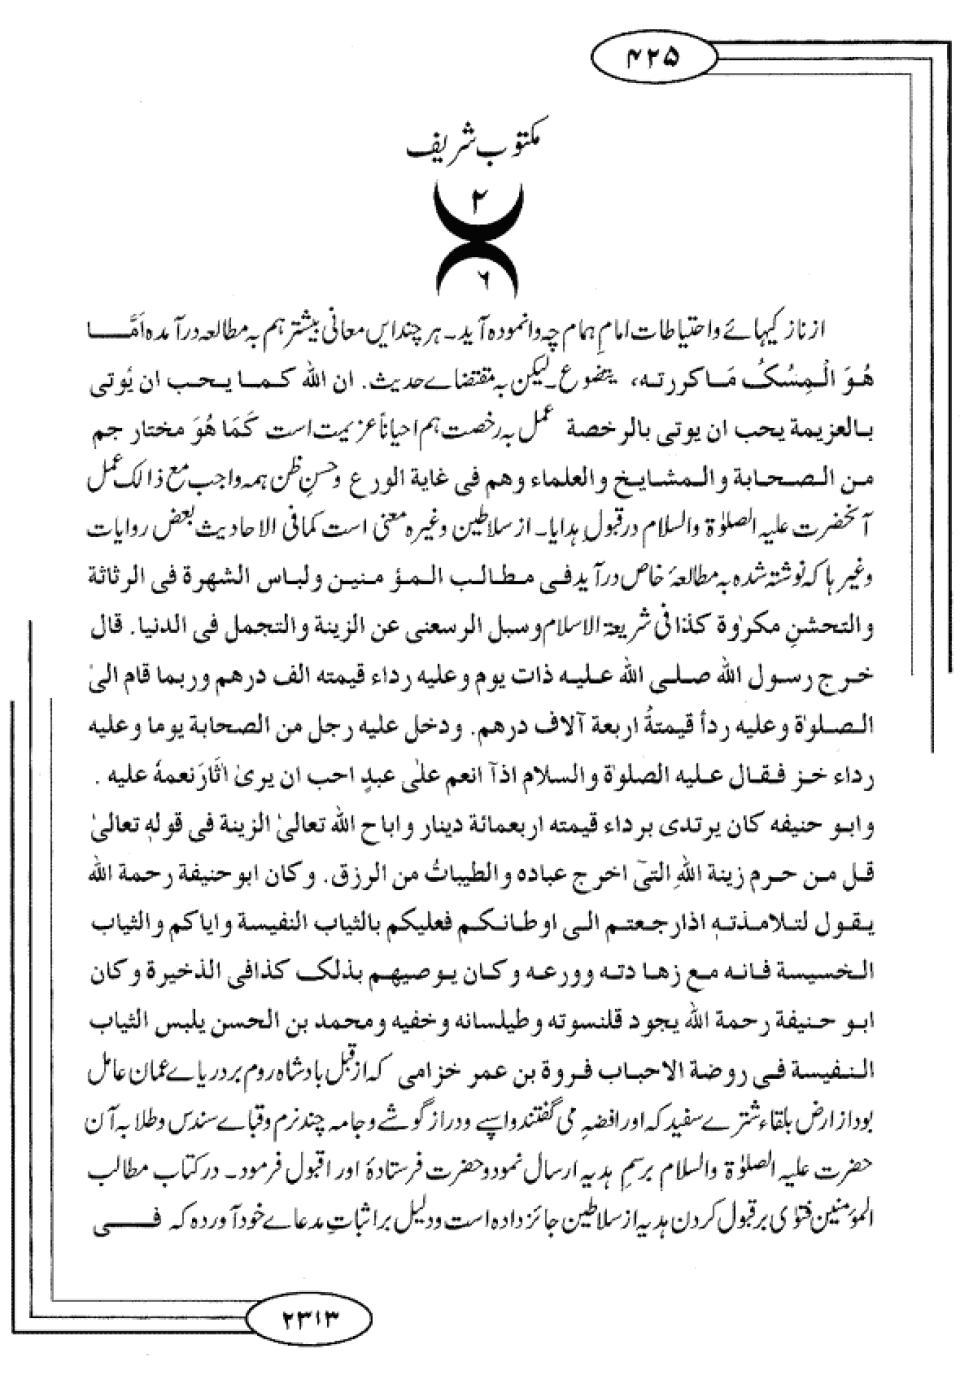 ۴۲۵
مکتوب شریف
۲
۶
از نازکیہائے واحتیاطات امامِ ہمام چہ وانمودہ آید۔ ہر چند ایں معانی بیشتر ہم بہ مطالعہ در آمدہ اَمَّا
هُوَ الْمِسْکُ مَا کررتہ، یتضوع۔ لیکن بہ مقتضاے حدیث. ان الله کما یحب ان یُوتی
بالعزیمة یحب ان یوتی بالرخصة عمل بہ رخصت ہم احیاناً عزیمت است کَمَا هُوَ مختار جم
من الصحابة والمشایخ والعلماء وهم فی غایة الورع وحسنِ ظن ہمہ واجب مع ذالک عمل
آنحضرت علیہ الصلوٰة والسلام در قبولِ ہدایا۔ از سلاطین وغیرہ معنی است کمافی الاحادیث بعض روایات
وغیر ہا کہ نوشتہ شدہ بہ مطالعۂ خاص در آید فی مطالب المؤ منین ولباس الشهرة فی الرثاثة
والتحشنِ مکروٰة کذا فی شریعة الاسلام وسبل الرسعنی عن الزینة والتجمل فی الدنیا. قال
خرج رسول الله صلی الله علیه ذات یوم وعلیه رداء قیمته الف درهم وربما قام الیٰ
الصلوٰة وعلیه ردأ قیمتهُ اربعة آلاف درهم. ودخل علیه رجل من الصحابة یوما وعلیه
رداء خز فقال علیه الصلوٰة والسلام اذآ انعم علیٰ عبدٍ احب ان یریٰ اٰثارَ نعمهٗ علیه .
وابو حنیفه کان یرتدی برداء قیمته اربعمائة دینار واباح الله تعالیٰ الزینة فی قولهٖ تعالیٰ
قل من حرم زینة اللهِ التیٓ اخرج عباده والطیباتُ من الرزق. وکان ابوحنیفة رحمة الله
یقول لتلامذتهٖ اذارجعتم الی اوطانکم فعلیکم بالثیاب النفیسة وایاکم والثیاب
الخسیسة فانه مع زهادته وورعه وکان یوصیهم بذلک کذافی الذخیرة وکان
ابو حنیفة رحمة الله یجود قلنسوته وطیلسانه وخفیه ومحمد بن الحسن یلبس الثیاب
النفیسة فی روضة الاحباب فروة بن عمر خزامی کہ از قبل بادشاہ روم بر دریاے عمان عامل
بود از ارض بلقاء شترے سفید کہ اور افضہ می گفتند واسپے ودراز گوشے وجامہ چند نرم وقباے سندس وطلا بہ آن
حضرت علیہ الصلوٰة والسلام برسمِ ہدیہ ارسال نمود وحضرت فرستادۂ اور اقبول فرمود۔ در کتاب مطالب
المؤمنین فتوٰی بر قبول کردن ہدیہ از سلاطین جائز دادہ است ودلیل بر اثباتِ مدعاے خود آوردہ کہ فی
۲۳۱۳